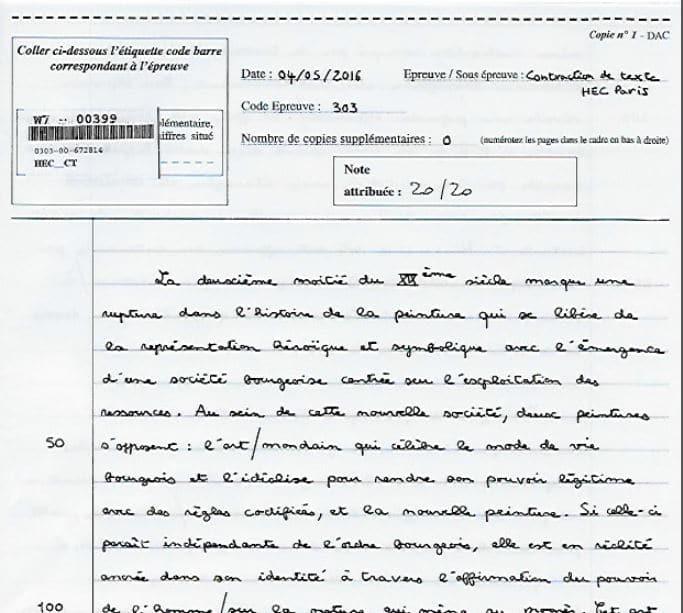 Copie n° 1 - DAC
Coller ci-dessous l'étiquette code barre
correspondant à l'épreuve
W7 -- 00399
lémentaire,
iffres situé
0303-00-672814
HEC_CT
Date : 04/05/2016
Epreuve / Sous épreuve : Contraction de texte
HEC Paris
Code Epreuve : 303
Nombre de copies supplémentaires : 0 (numérotez les pages dans le cadre en bas à droite)
Note
attribuée : 20/20
La deuxième moitié du XIXème siècle marque une
rupture dans l'histoire de la peinture qui se libère de
la représentation héroïque et symbolique avec l'émergence
d'une société bourgeoise centrée sur l'exploitation des
ressources. Au sein de cette nouvelle société, deux peintures
50 s'opposent : l'art/mondain qui célèbre le mode de vie
bourgeois et l'idéalise pour rendre son pouvoir légitime
avec des règles codifiées, et la nouvelle peinture. Si celle-ci
paraît indépendante de l'ordre bourgeois, elle est en réalité
ancrée dans son identité à travers l'affirmation du pouvoir
100 de l'homme/sur la nature qui mène au progrès. Cet art